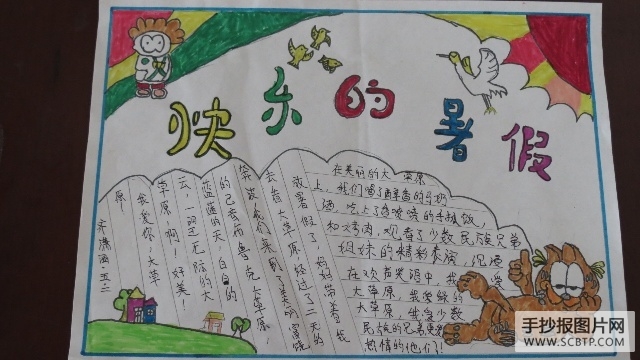 快乐的暑假
放暑假了，妈妈带着我
去看大草原，经过了二天的
奔波我们来到了美丽富饶
的巴音布鲁克大草原，
蓝蓝的天，白白的
云，一望无际的大
草原啊！好美！
我爱你，大草
原
五·二
在美丽的大草原
上，我们喝了醇香的马奶
酒，吃上了香喷喷的手抓饭，
和烤肉，观看了少数民族兄弟
姐妹的精彩表演，沉浸
在欢声笑语中，我爱
大草原，我爱绿的
大草原，爱少数
民族的兄弟更爱
热情的他们！
手抄报图片网
WWW.SCBTP.COM